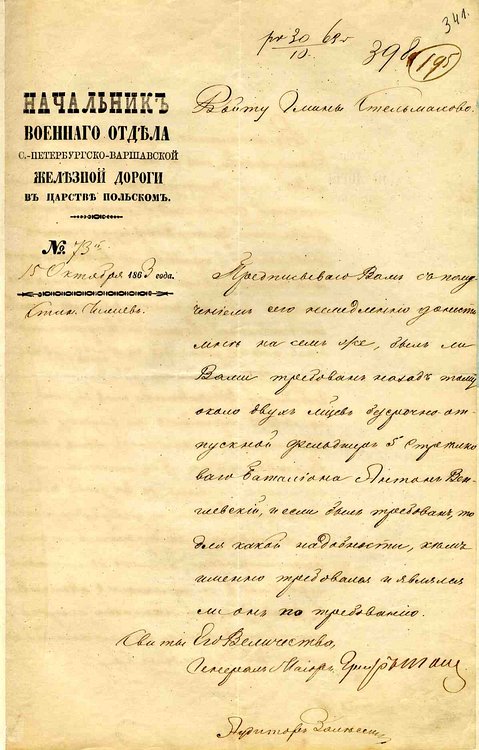 341.
398
195
НАЧАЛЬНИКЪ
ВОЕННАГО ОТДѢЛА
С.-ПЕТЕРБУРГСКО-ВАРШАВСКОЙ
ЖЕЛѢЗНОЙ ДОРОГИ
ВЪ ЦАРСТВѢ ПОЛЬСКОМЪ.
№ 73
15 Октября 1863 года.
Войту Гмины Стельмахово.
Предписываю Вамъ съ полу
ченіемъ сего немедленно донести
мнѣ на семъ же, былъ ли
Вами требованъ назадъ тому
около двухъ мѣсяцевъ безсрочно от-
пускной фельдшеръ 5 Стрѣлко
ваго баталіона Антонъ Вен
глевскій, и если былъ требованъ, то
для какой надобности, кѣмъ
именно требовался и являлся
ли онъ по требованію.
Свиты Его Величества,
Генералъ Маіоръ
Аудиторъ